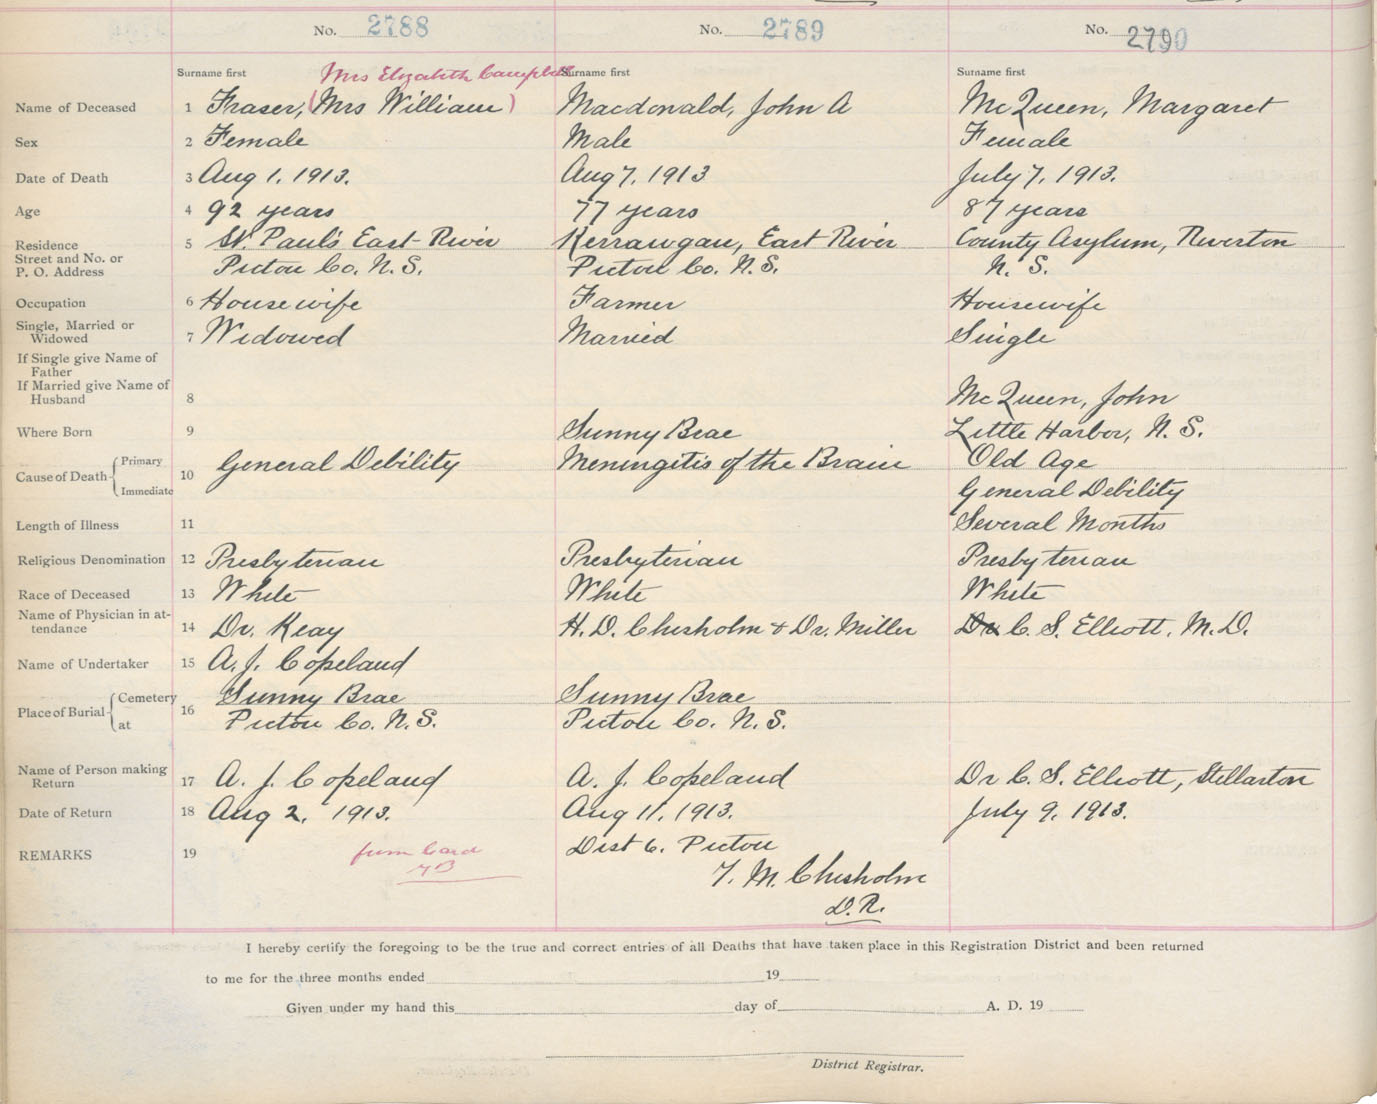 No. 2788 No. 2789 No. 2790
Mrs Elizabeth Campbell
Surname first Surname first Surname first
Name of Deceased 1 Fraser, (Mrs William) Macdonald, John A McQueen, Margaret
Sex 2 Female Male Female
Date of Death 3 Aug 1. 1913. Aug 7, 1913 July 7, 1913.
Age 4 92 years 77 years 87 years
Residence 5 St. Paul's East River Kerrawgau, East River County Asylum, Riverton
Street and No. or
P. O. Address Pictou Co. N.S. Pictou Co. N.S. N. S.
Occupation 6 Housewife Farmer Housewife
Single, Married or
Widowed 7 Widowed Married Single
If Single give Name of
Father
If Married give Name of
Husband 8 McQueen, John
Where Born 9 Sunny Brae Little Harbor, N. S.
Cause of Death Primary 10 General Debility Meningitis of the Brain Old Age
Immediate General Debility
Length of Illness 11 Several Months
Religious Denomination 12 Presbyterian Presbyterian Presbyterian
Race of Deceased 13 White White White
Name of Physician in at-
tendance 14 Dr. Keay H. D. Chisholm & Dr. Miller Dr C. S. Elliott, M.D.
Name of Undertaker 15 A. J. Copeland
Place of Burial Cemetery 16 Sunny Brae Sunny Brae
at Pictou Co. N.S. Pictou Co. N.S.
Name of Person making
Return 17 A. J. Copeland A. J. Copeland Dr C. S. Elliott, Stellarton
Date of Return 18 Aug 2, 1913. Aug 11, 1913. July 9, 1913.
REMARKS 19 from Card Dist 6. Pictou
T. M. Chisholm
D.R.
I hereby certify the foregoing to be the true and correct entries of all Deaths that have taken place in this Registration District and been returned
to me for the three months ended 19
Given under my hand this day of A. D. 19
District Registrar.